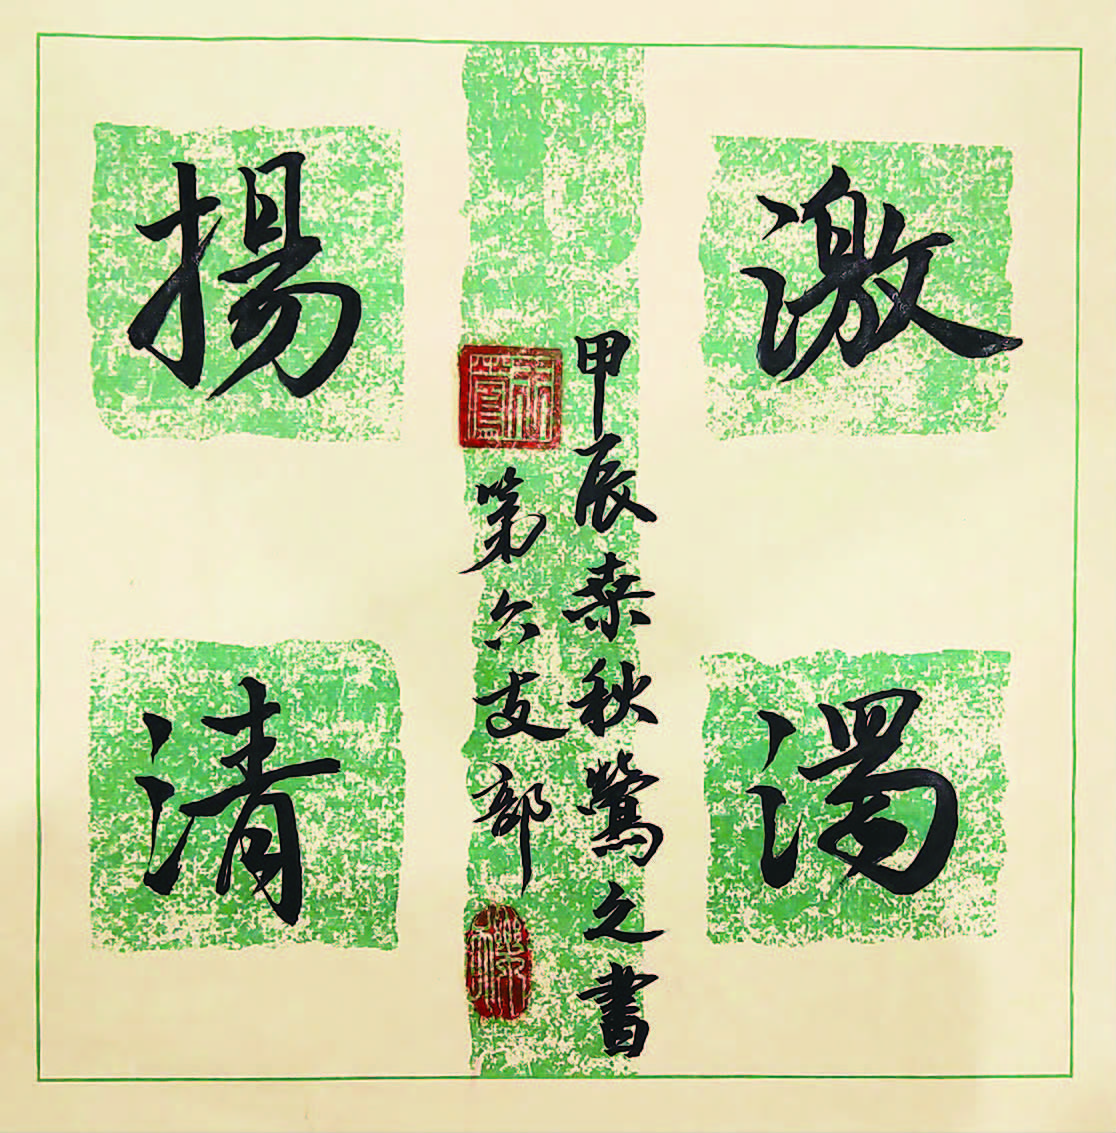 激濁
揚清
甲辰桒秋鶯之書
第六支部